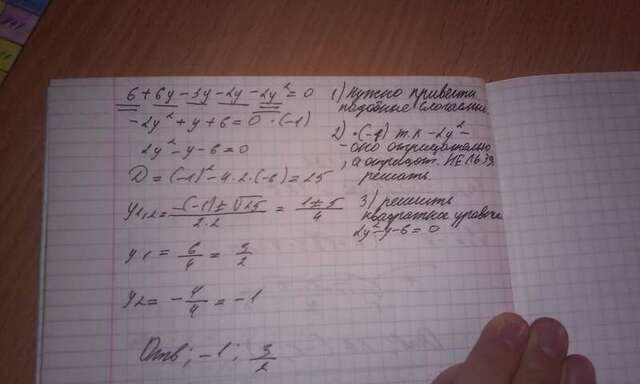 6 + 6y - 3y - 2y - 2y² = 0
-2y² + y + 6 = 0 ·(-1)
2y² - y - 6 = 0
D = (-1)² - 4·2·(-6) = 25
y1,2 = -(-1) ± √25 / 2·2 = 1 ± 5 / 4
y1 = 6/4 = 3/2
y2 = -4/4 = -1
Отв; -1; 3/2
1) Нужно привести
подобные слагаемые
2) ·(-1) т.к -2y² -
- оно отрицательно
, а отрицат. НЕЛЬЗЯ
решать.
3) решить
квадратное уравнен
2y² - y - 6 = 0